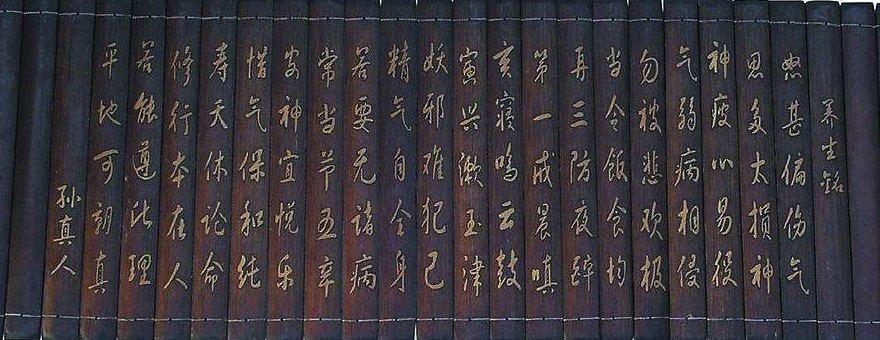 养生铭
怒甚偏伤气
思多太损神
神疲心易役
气弱病相侵
勿被悲欢极
当令饭食均
再三防夜醉
第一戒晨嗔
亥寝鸣云鼓
寅兴漱玉津
妖邪难犯己
精气自全身
若要无诸病
常当节五辛
安神宜悦乐
惜气保和纯
寿夭休论命
修行本在人
若能遵此理
平地可朝真
孙真人